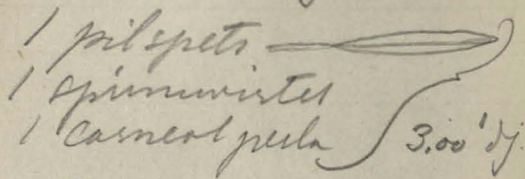 1 pilspets
1 spinnvirtel
1 carneolperla 3.00' dj.